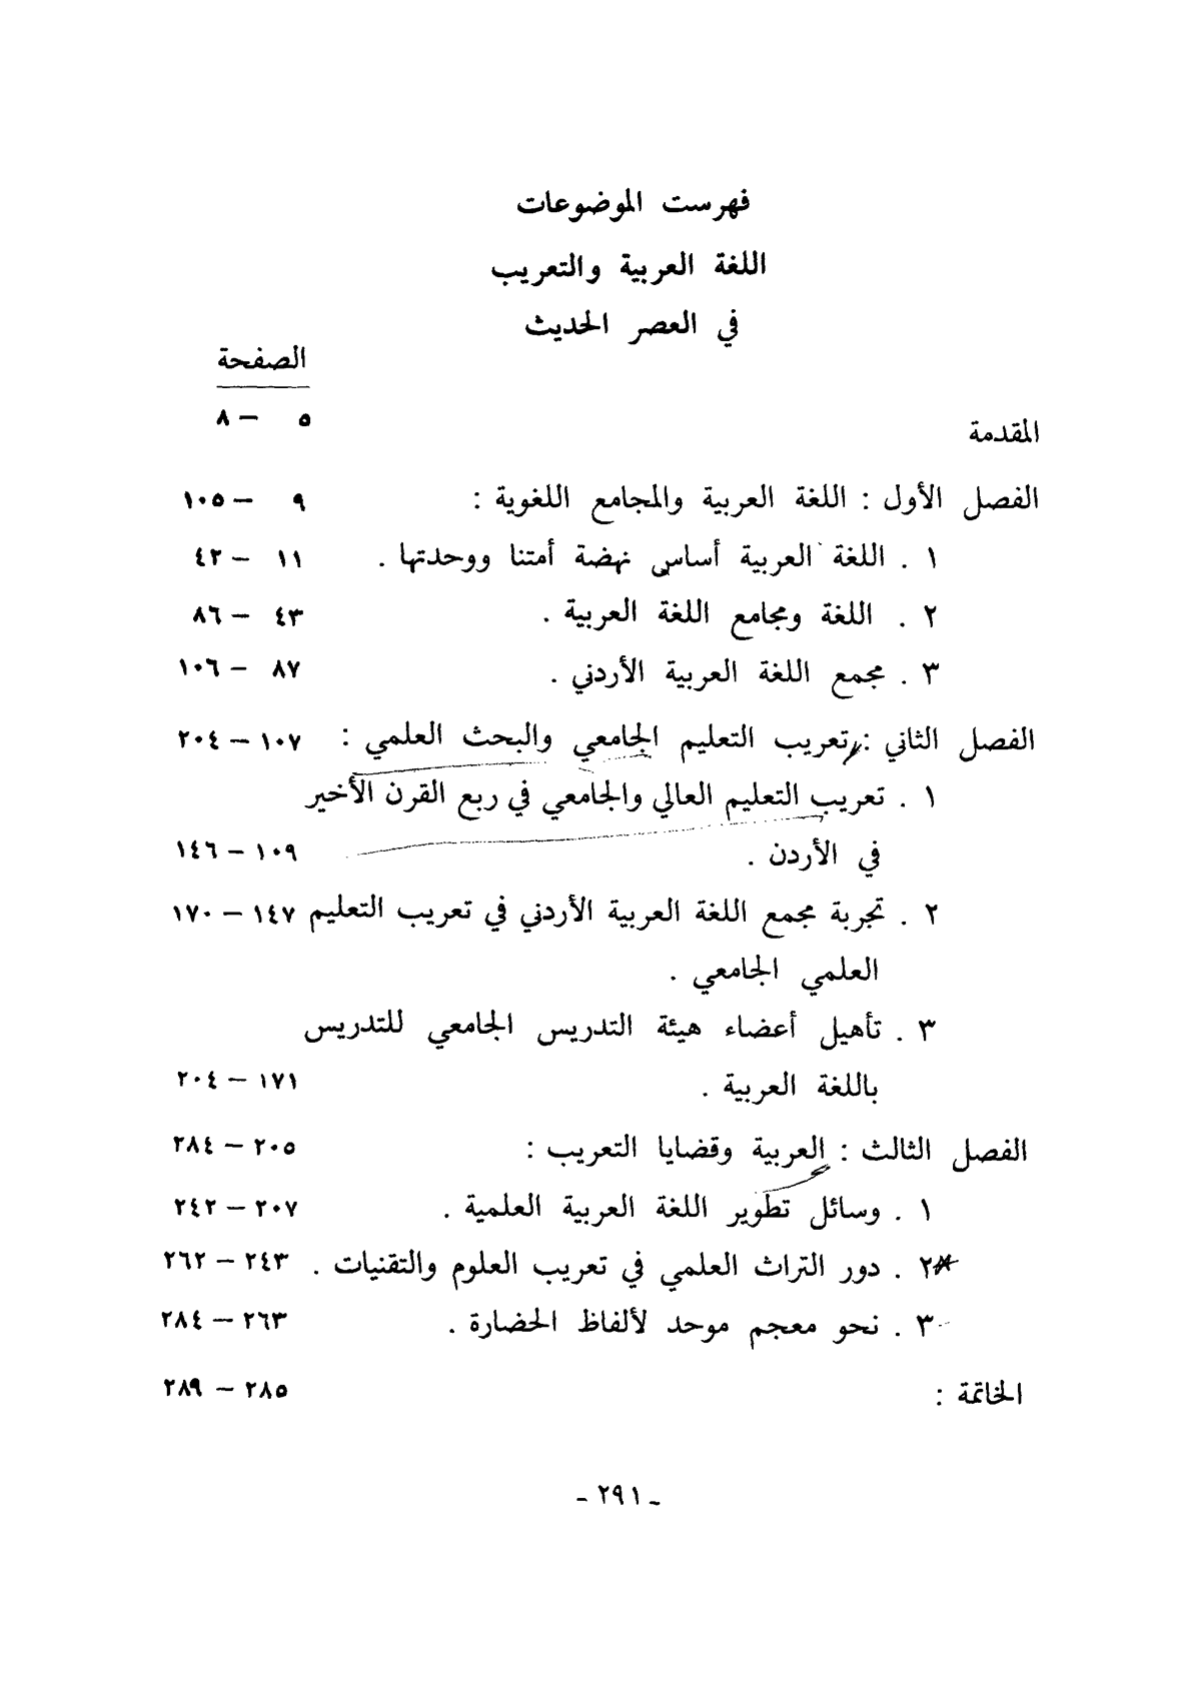 فهرست الموضوعات
اللغة العربية والتعريب
في العصر الحديث
الصفحة
المقدمة ٥ – ٨
الفصل الأول : اللغة العربية والمجامع اللغوية : ٩ – ١٠٥
١ . اللغة العربية أساس نهضة أمتنا ووحدتها . ١١ – ٤٢
٢ . اللغة ومجامع اللغة العربية . ٤٣ – ٨٦
٣ . مجمع اللغة العربية الأردني . ٨٧ – ١٠٦
الفصل الثاني : تعريب التعليم الجامعي والبحث العلمي : ١٠٧ – ٢٠٤
١ . تعريب التعليم العالي والجامعي في ربع القرن الأخير
في الأردن . ١٠٩ – ١٤٦
٢ . تجربة مجمع اللغة العربية الأردني في تعريب التعليم ١٤٧ – ١٧٠
العلمي الجامعي .
٣ . تأهيل أعضاء هيئة التدريس الجامعي للتدريس
باللغة العربية . ١٧١ – ٢٠٤
الفصل الثالث : العربية وقضايا التعريب : ٢٠٥ – ٢٨٤
١ . وسائل تطوير اللغة العربية العلمية . ٢٠٧ – ٢٤٢
٢ . دور التراث العلمي في تعريب العلوم والتقنيات . ٢٤٣ – ٢٦٢
٣ . نحو معجم موحد لألفاظ الحضارة . ٢٦٣ – ٢٨٤
الخاتمة : ٢٨٥ – ٢٨٩
- ٢٩١ -